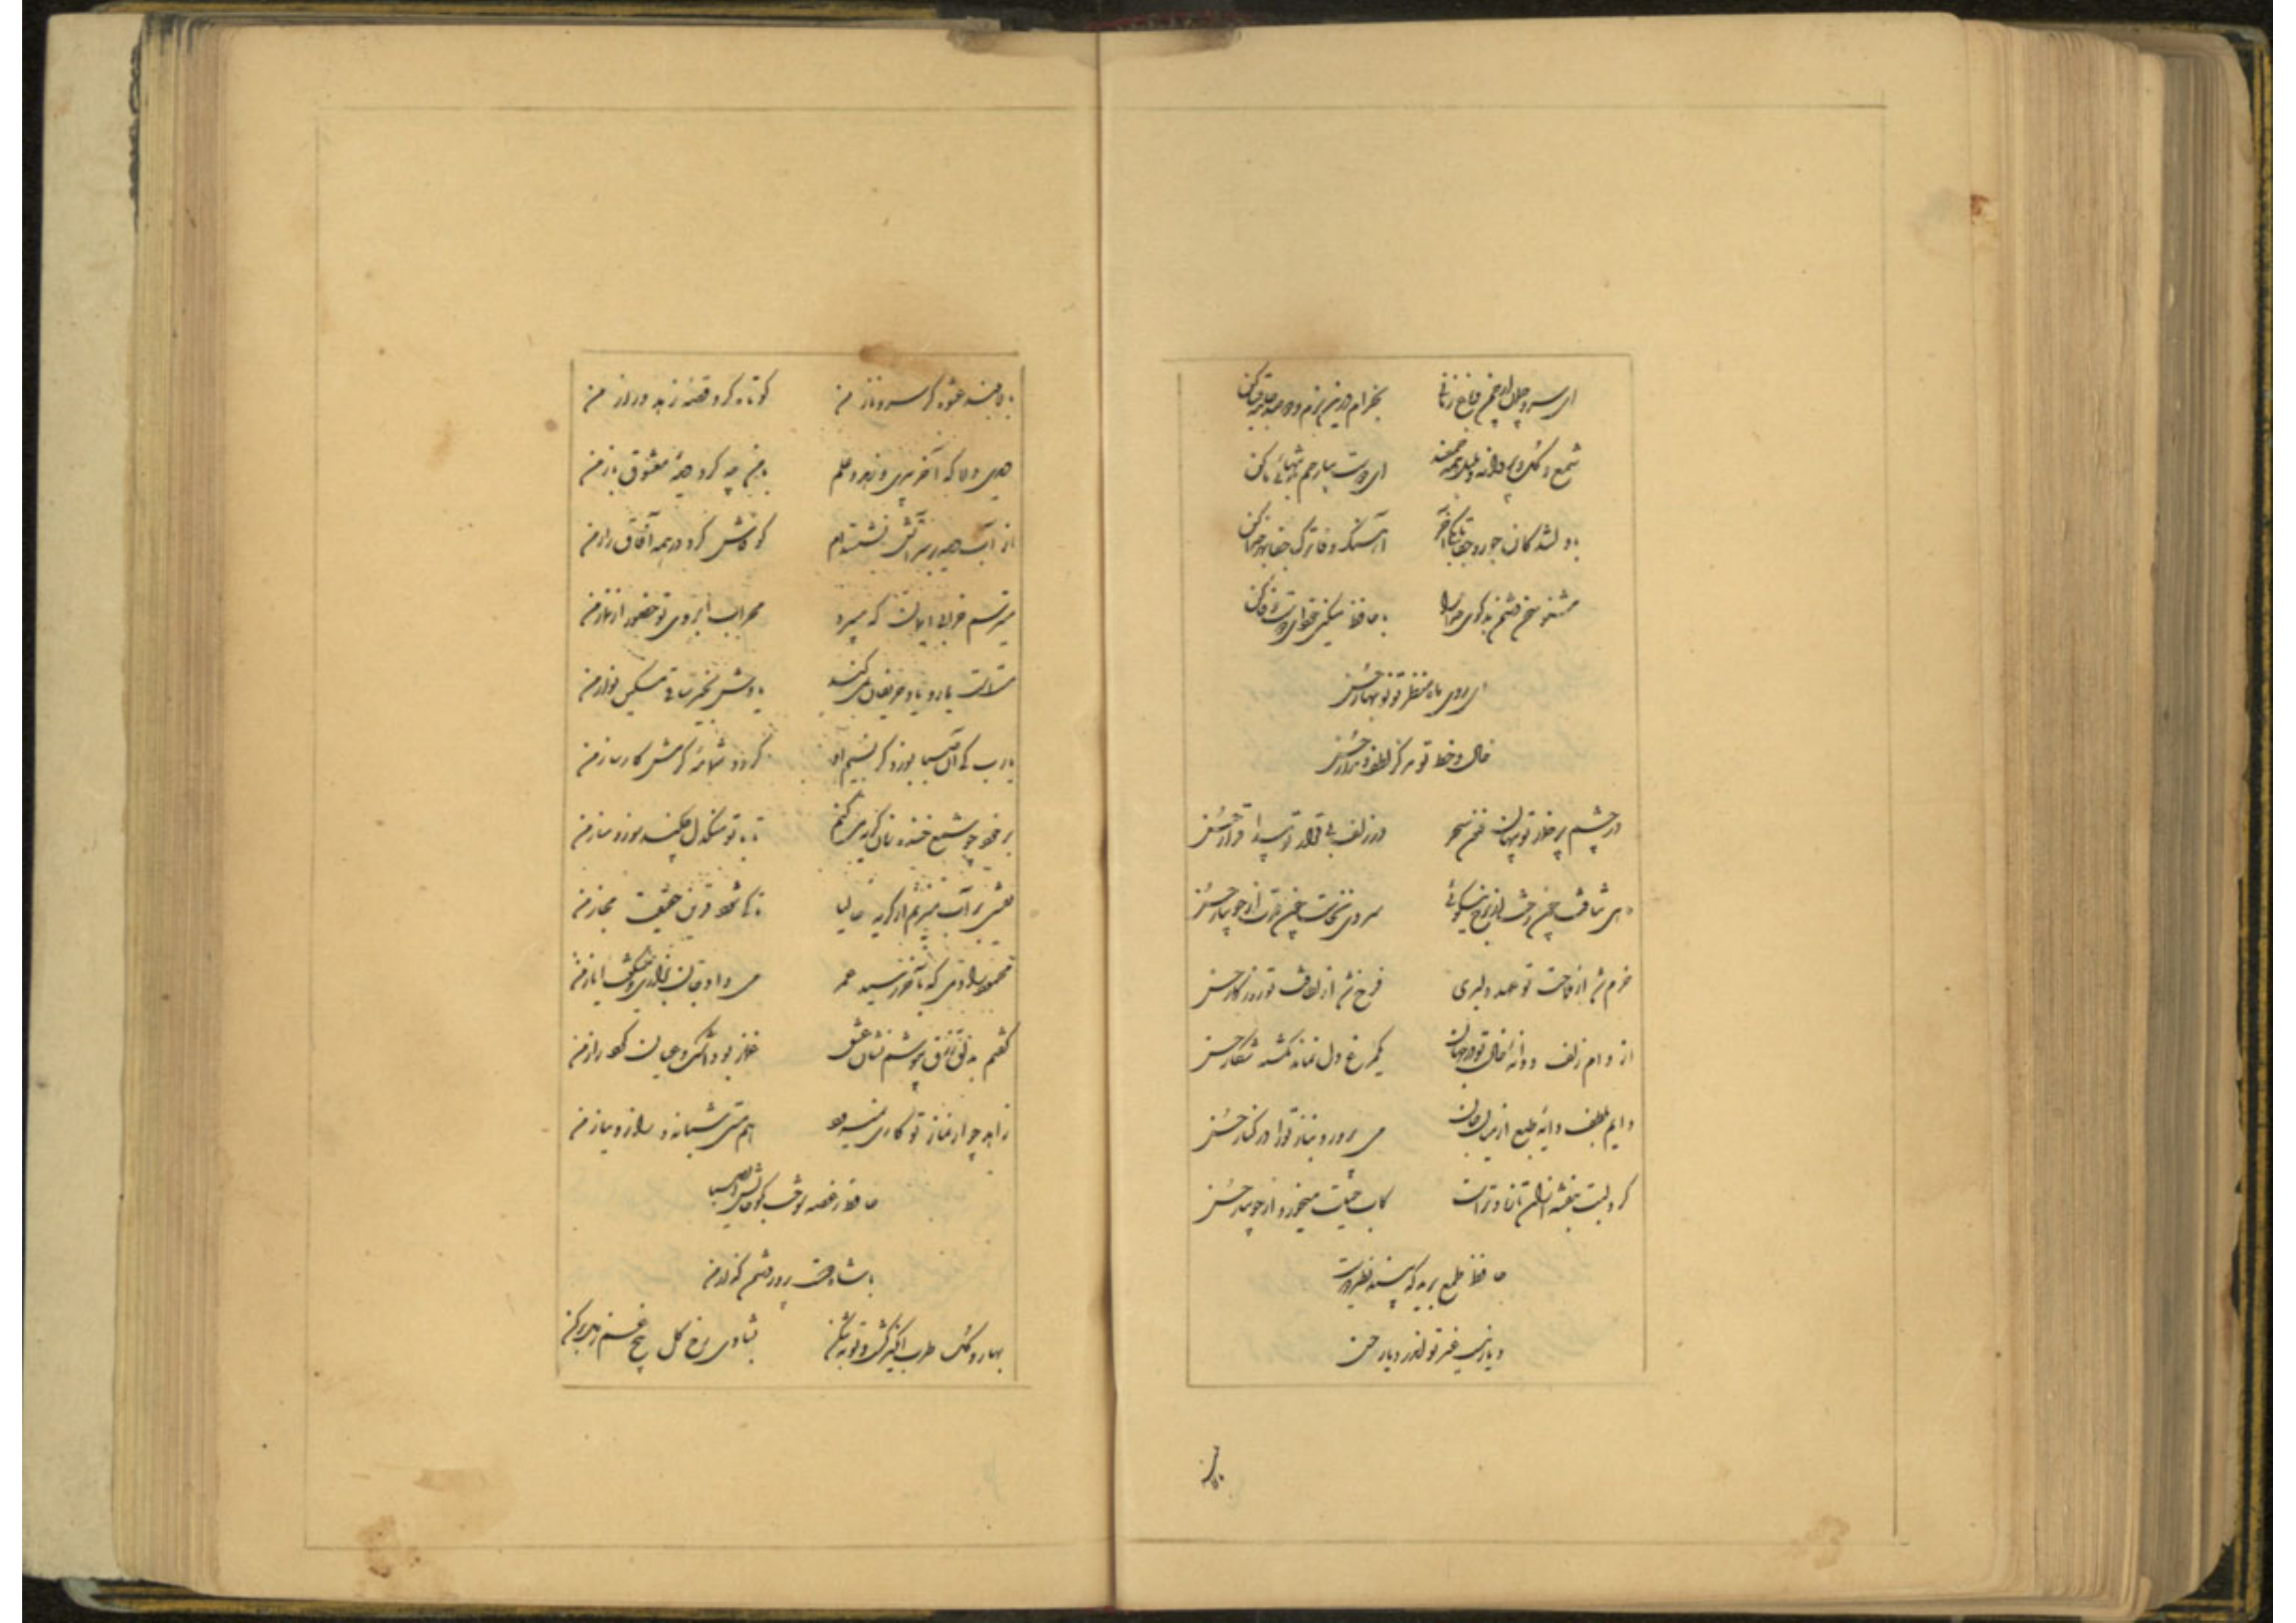 ای سرو چمان از چمن و باغ زمانی بخرام درین بزم و دو صد جامه قبا کن
شمع و گل و پروانه و بلبل همه جمعند ای دوست بیا رحم به تنهائی ما کن
با دلشدگان جور و جفا تا بکی آخر آهنگ وفا ترک جفا بهر خدا کن
مشنو سخن دشمن بدگوی خدا را با حافظ مسکین خود ای دوست وفا کن
ای روی ماه منظر تو نوبهار حسن
خال و خط تو مرکز لطف و مدار حسن
در چشم پر خمار تو پنهان فسون سحر در زلف بی قرار تو پیدا قرار حسن
ماهی نتافت چون رخت از برج نیکوئی سروی نخاست چون قدت از جویبار حسن
خرم شد از ملاحت تو عهد دلبری فرخ شد از لطافت تو روزگار حسن
از دام زلف و دانه خال تو در جهان یک مرغ دل نماند نگشته شکار حسن
دایم بلطف دایه طبع از میان جان می پرورد بناز تو را در کنار حسن
گرد لبت بنفشه از آن تازه و ترست کاب حیات میخورد از جویبار حسن
حافظ طمع برید که بیند نظیر دوست
دیار نیست غیر تو اندر دیار حسن
بالا
بالا بلند عشوه گر سرو ناز من کوتاه کرد قصه زهد دراز من
دیدی دلا که آخر پیری و زهد و علم با من چه کرد دیده معشوق باز من
از آب دیده بر سر آتش نشسته ام کو فاش کرد در همه آفاق راز من
میترسم از خرابی ایمان که میبرد محراب ابروی تو حضور از نماز من
مستست یار و یاد حریفان نمی کند یادش بخیر ساقی مسکین نواز من
یارب کی آن صبا بوزد کز نسیم او گردد شمامه کرمش کارساز من
بر خود چو شمع خنده زنان گریه می کنم تا با تو سنگدل چکند سوز و ساز من
نقشی بر آب میزنم از گریه حالیا تا کی شود قرین حقیقت مجاز من
محمود را دمی که بآخر رسید عمر می داد جان بزاری و میگفت ایاز من
گفتم به دلق زرق بپوشم نشان عشق غماز بود اشک و عیان کرد راز من
زاهد چو از نماز تو کاری نمیرود هم مستی شبانه و راز و نیاز من
حافظ ز غصه سوخت بگو حالش ای صبا
با شاه دوست پرور دشمن گداز من
بهار و گل طرب انگیز گشت و توبه شکن بشادی رخ گل بیخ غم ز دل برکن